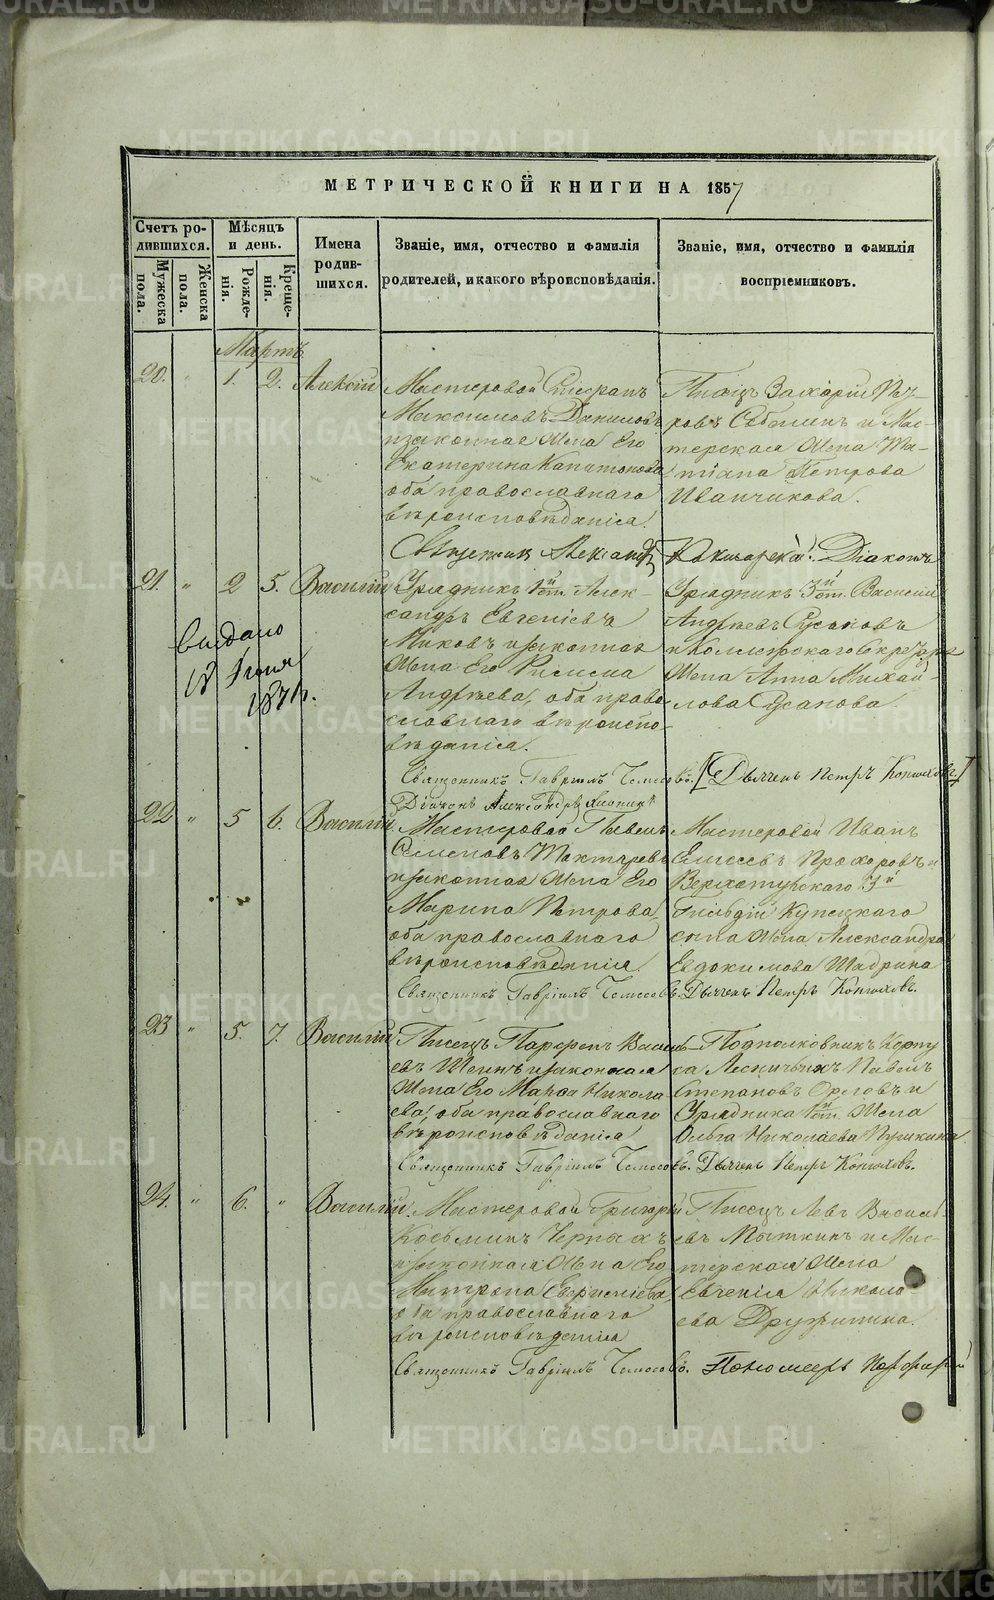 МЕТРИЧЕСКОЙ КНИГИ НА 1857
Счетъ ро-
дившихся.
Мужеска
пола.
Женска
пола.
Мѣсяцъ
и день.
Рожде-
нія.
Креще-
нія.
Имена
родив-
шихся.
Званіе, имя, отчество и фамилія
родителей, и какого вѣроисповѣданія.
Званіе, имя, отчество и фамилія
воспріемниковъ.
Мартъ
20. " 1. 2. Алексій
Мастеровой
Максимовъ Даниловъ
и законная жена Его
Екатерина Капитонова
оба православнаго
вѣроисповѣданія.
Писецъ Захарій Пет-
ровъ и Мас-
терская жена Та-
тіана Петрова
Иванчикова.
Священник Александр Кокшарскій. Діаконъ
21. " 2 5. Василій
выдано
18 Іюня
Урядникъ 1й ст. Алек-
сандръ Евгеніевъ
и законная
жена Его
Андрѣева, оба право-
славнаго вѣроиспо-
вѣданія.
Урядникъ 3й ст. Василій
Андрѣевъ Русаковъ
и Коллежскаго Секретаря
жена Анна Михай-
лова Русакова.
Священникъ Гавріилъ [Дьячекъ Петръ Конюховъ]
Діаконъ Александръ
22 " 5 6. Василій.
Мастеровой Павелъ
Семеновъ
и законная жена Его
Марина Петрова,
оба православнаго
вѣроисповѣданія.
Мастеровой Иванъ
Елисеевъ Прохоровъ и
Верхотурскаго 3й
Гильдіи Купецкаго
сына жена Александра
Евдокимова Шадрина
Священникъ Гавріилъ Дьячекъ Петръ Конюховъ.
23 " 5. 7. Василій
Писецъ Парфенъ Василь-
евъ Шеинъ и законная
жена Его Марѳа Никола-
ева, оба православнаго
вѣроисповѣданія
Подполковникъ Корпу-
са Лесничихъ Павелъ
Степановъ Орловъ и
Урядника 1й ст. жена
Ольга Николаева Пушкина
Священникъ Гавріилъ Дьячекъ Петръ Конюховъ.
24. " 6. " Василій.
Мастеровой Григорій
Козьминъ Черныхъ
и законная жена Его
Матрона
оба православнаго
вѣроисповѣданія
Писецъ Левъ Василь-
евъ Пыткинъ и Мас-
терская жена
Евгенія Никола-
ева Дружинина.
Священникъ Гавріилъ Пономарь Порфирій
METRIKI.GASO-URAL.RU